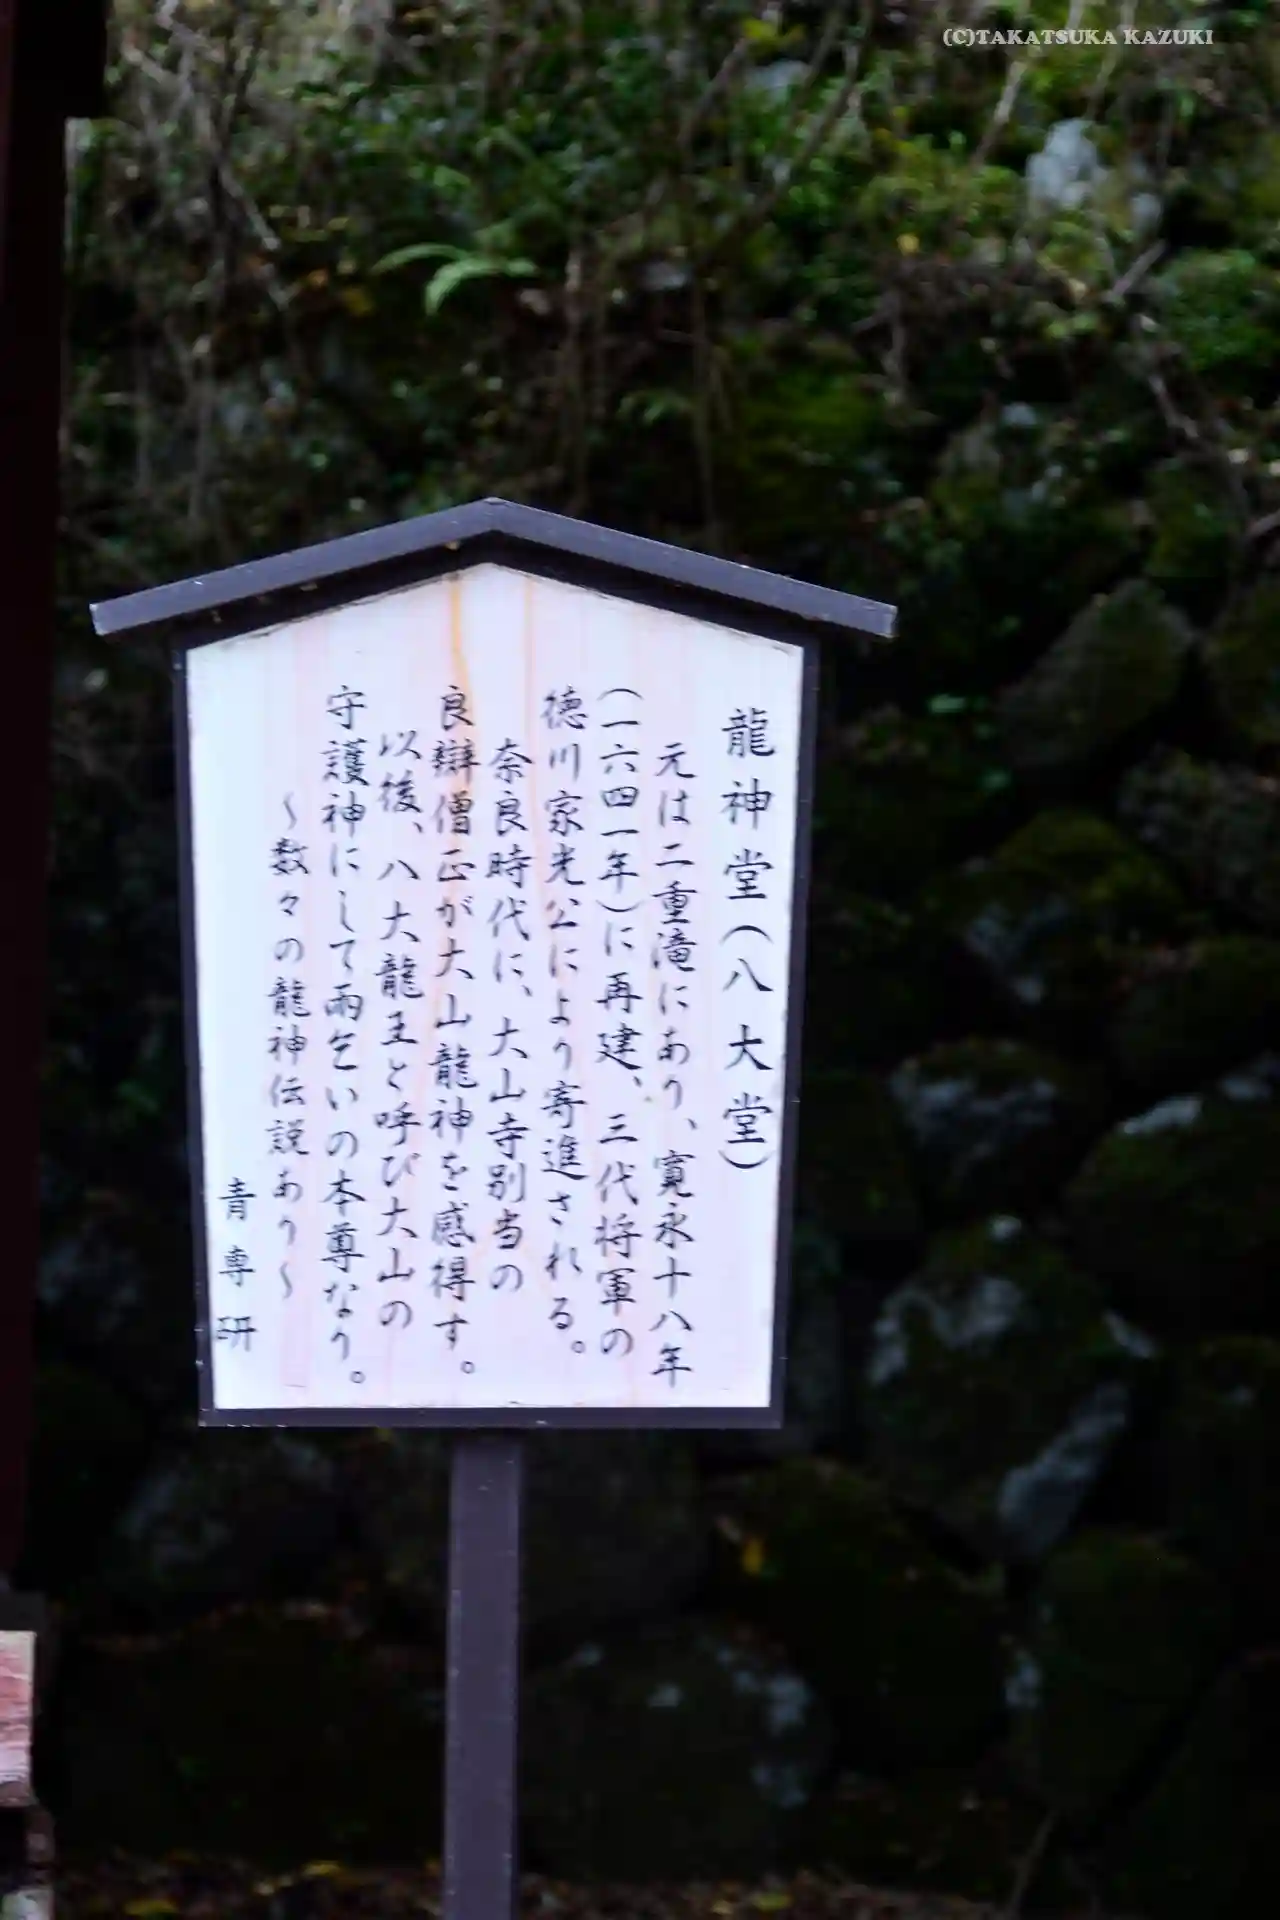 (C)TAKATSUKA KAZUKI
龍神堂(八大堂)
元は二重滝にあり、寛永十八年
(一六四一年)に再建、三代将軍の
徳川家光公により寄進される。
奈良時代に、大山寺別当の
良辯僧正が大山龍神を感得す。
以後、八大龍王と呼び大山の
守護神にして雨乞いの本尊なり。
~数々の龍神伝説あり~
青専研